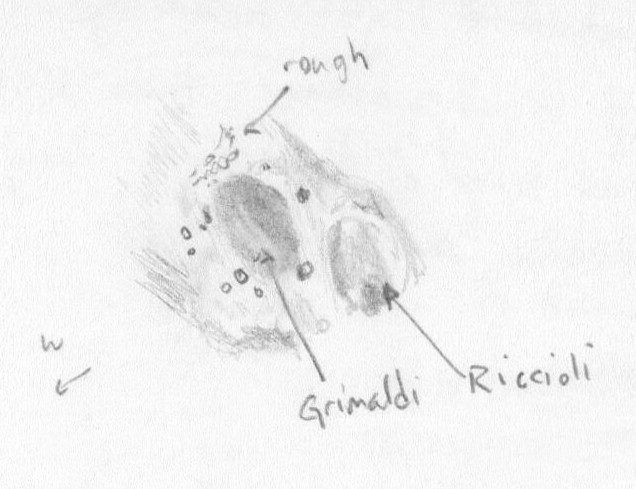 rough
W
Grimaldi
Riccioli